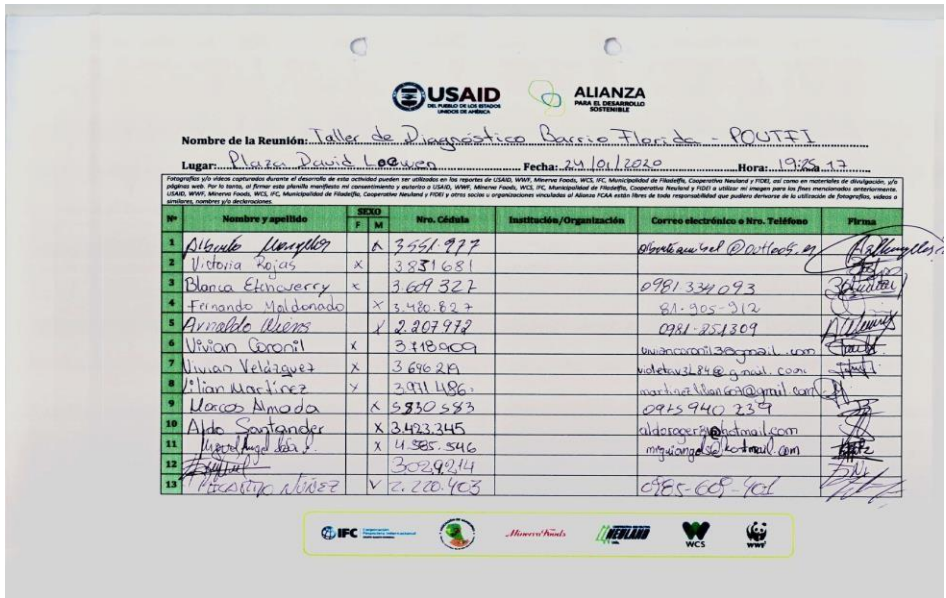 USAID
DEL PUEBLO DE LOS ESTADOS
UNIDOS DE AMÉRICA
ALIANZA
PARA EL DESARROLLO
SOSTENIBLE
Nombre de la Reunión: Taller de Diagnóstico Barrio Florida - POUTFI
Lugar: Plaza David Loewen Fecha: 24/01/2020 Hora: 19:25
Fotografías y/o videos capturados durante el desarrollo de esta actividad pueden ser utilizados en los reportes de USAID, WWF, Minerva Foods, WCS, IFC, Municipalidad de Filadelfia, Cooperativa Neuland y FIDEI, así como en materiales de divulgación, y/o
páginas web. Por lo tanto, al firmar esta planilla manifiesto mi consentimiento y autorizo a USAID, WWF, Minerva Foods, WCS, IFC, Municipalidad de Filadelfia, Cooperativa Neuland y FIDEI a utilizar mi imagen para los fines mencionados anteriormente.
USAID, WWF, Minerva Foods, WCS, IFC, Municipalidad de Filadelfia, Cooperativa Neuland y FIDEI y otros socios u organizaciones vinculados al Alianza FCAA están libres de toda responsabilidad que pudiera derivarse de la utilización de fotografías, videos o
similares, nombres y/o declaraciones.
Nº Nombre y apellido SEXO Nro. Cédula Institución/Organización Correo electrónico o Nro. Teléfono Firma
F M
1 Alberto 3551.977
2 Victoria Rojas x 3831681
3 Blanca Etcheverry x 3.609 322 0981 334093
4 Fernando Maldonado x 3.480.827 81-905-912
5 Arnaldo Wiens x 2.207972 0981-851309
6 Vivian Coronil x 3718909 viviancoronil3@gmail.com
7 Vivian Velázquez x 3 696 219 violetav3284@gmail.com
8 Lilian Martínez x 3.971.486.
9 Marcos Almada x 5830583 0975 940 239
10 Aldo Santander x 3.423.345
11 Miguel Angel x 4.585.546
12 3029214
13 NÚÑEZ 2.220.403 0985-609-401
IFC
Minerva Foods
NEULAND
WCS
WWF